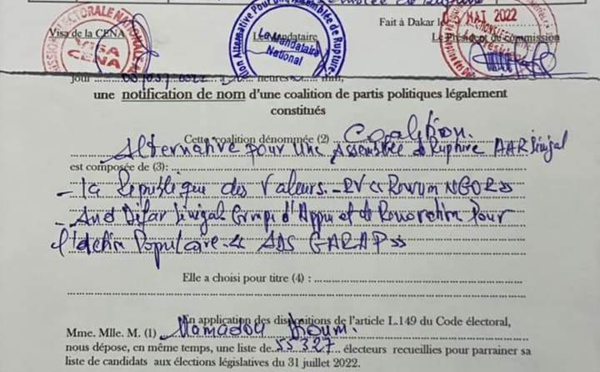 Fait à Dakar le 05 MAI 2022
Visa de la CENA
Le Mandataire
Le Président de commission
CENA
Le Mandataire
National
une notification de nom d'une coalition de partis politiques légalement
constitués
Cette coalition dénommée (2) Coalition
Alternative pour Une Assemblée de Rupture AAR Sénégal
est composée de (3):
- La République des Valeurs - RV
- And Défar Sénégal Groupe d'Appui et de Rénovation Pour
l'action Populaire - « ADS GARAP »
Elle a choisi pour titre (4) :
En application des dispositions de l'article L.149 du Code électoral,
Mme. Mlle. M. (1) Mamadou
nous dépose, en même temps, une liste de 55327 électeurs recueillies pour parrainer sa
liste de candidats aux élections législatives du 31 juillet 2022.